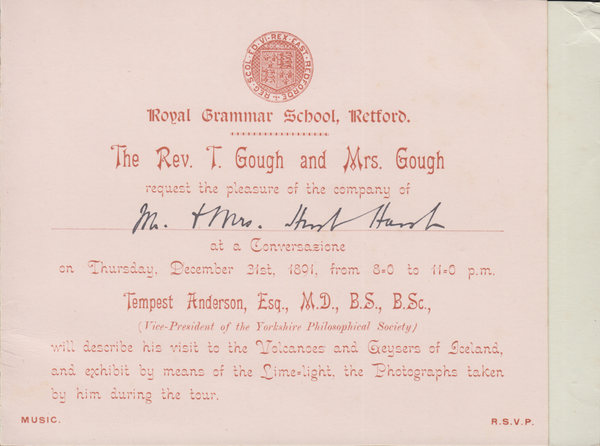 REG. SCOL. ED. VI. REX. EAST. REDFORDE
Royal Grammar School, Retford.
The Rev. T. Gough and Mrs. Gough
request the pleasure of the company of
Mr. & Mrs.
at a Conversazione
on Thursday, December 31st, 1891, from 8=0 to 11=0 p.m.
Tempest Anderson, Esq., M.D., B.S., B.Sc.,
(Vice-President of the Yorkshire Philosophical Society)
will describe his visit to the Volcanoes and Geysers of Iceland,
and exhibit by means of the Lime=light, the Photographs taken
by him during the tour.
MUSIC. R.S.V.P.